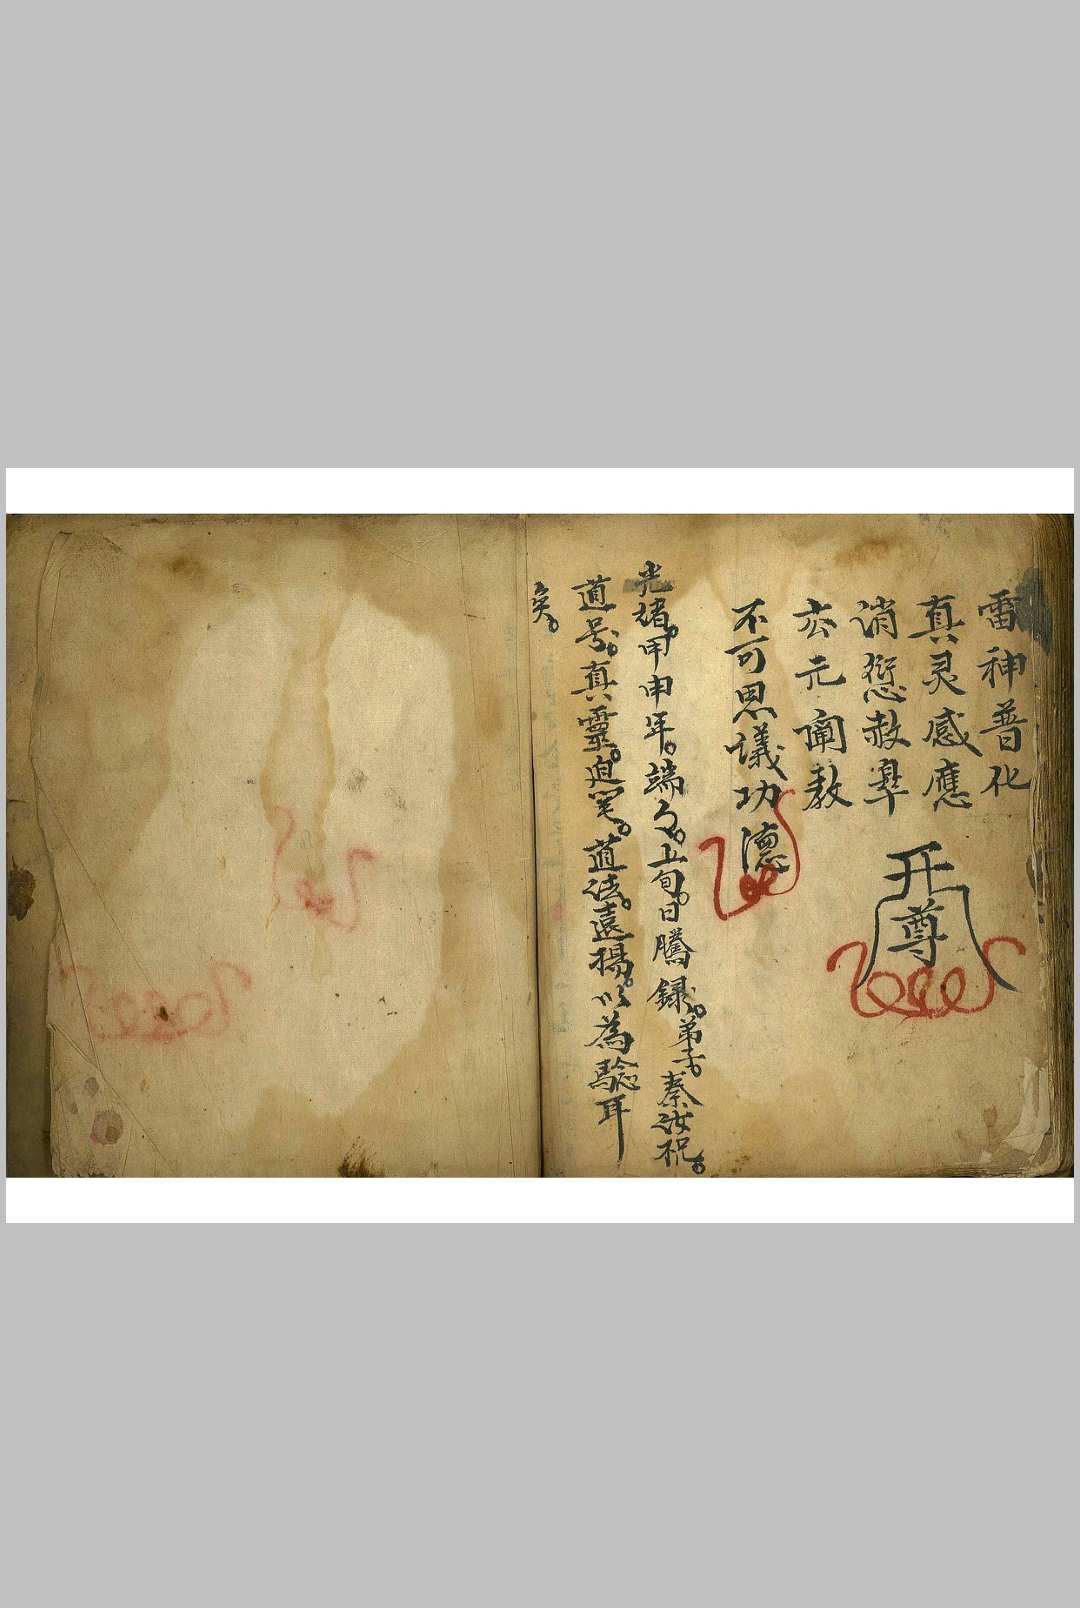 雷神普化
真灵感應
消愆赦辠
玄元闡教
不可思議功德
开
尊
光緒甲申年。端々。上旬。日騰録。弟子。秦汝祝。
道号。真靈。迫笔。道法。遠揚。以為驗耳
矣。